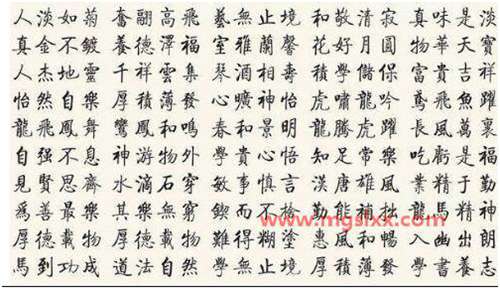 人淡如菊 奮翮高飛 藝無止境 和敬清寂 真味是淡
真金不鍍 養德澤福 室雅蘭馨 花好月圓 物華天寶
人杰地靈 千祥雲集 琴酒相壽 積學儲保 富貴吉祥
怡然自樂 厚積薄發 心曠神怡 虎嘯龍吟 鳶飛魚躍
龍飛鳳舞 鸞鳳和鳴 春和景明 龍騰虎躍 長風萬里
自强不息 神游物外 學貴心悟 知足常樂 吃虧是福
見賢思齊 水滴石穿 敏事慎言 漢唐雄風 業精于勤
爲善最樂 其樂無窮 鍥而不捨 勤能補拙 龍馬精神
www.mgslxx.com
厚德載物 厚德載物 難得糊塗 惠風和暢 入幽出朗
馬到功成 道法自然 學無止境 厚積薄發 學書養志